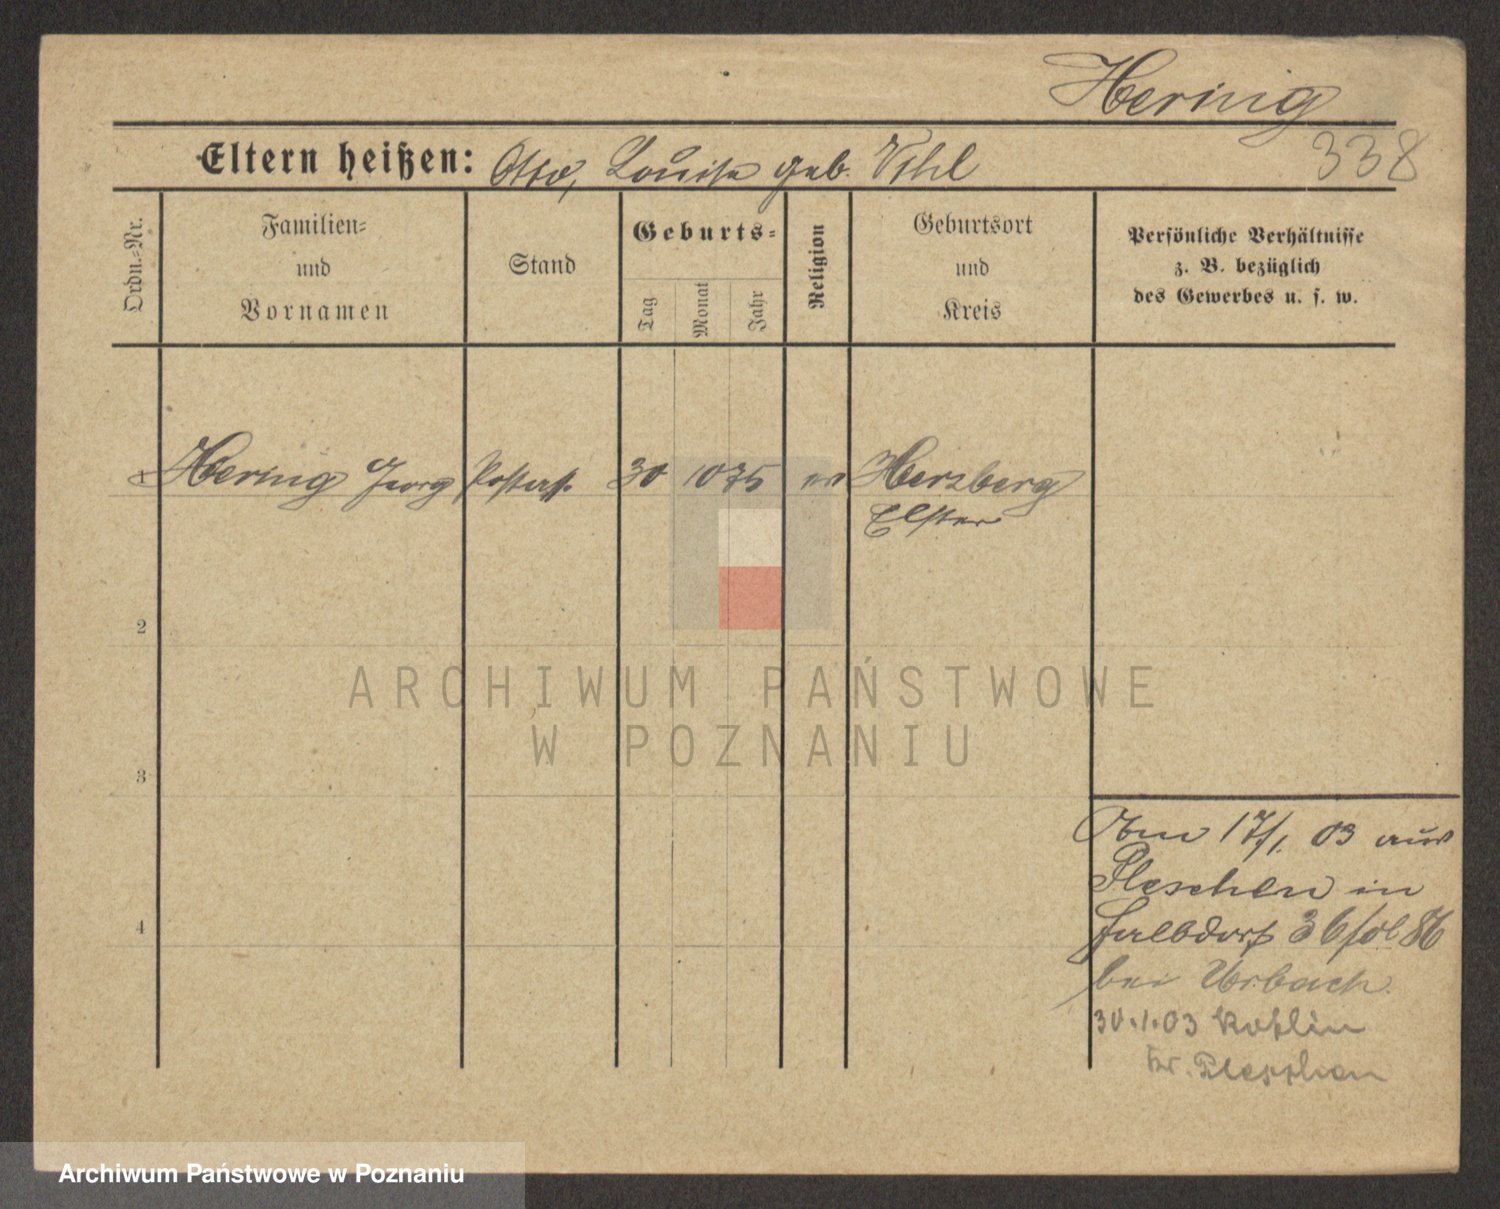 Hering
338
Eltern heißen: Otto, Louise geb. Vihl
Ordn.-Nr.
Familien- und Vornamen
Stand
Geburts-
Tag
Monat
Jahr
Religion
Geburtsort und Kreis
Persönliche Verhältnisse
z. B. bezüglich
des Gewerbes u. s. w.
Hering Georg Postass. 30 10 75 ev Herzberg
Elster
2
3
4
Am 17/1. 03 aus
Pleschen in
bei Urbach.
30.1.03 Kotlin
Kr. Pleschen
ARCHIWUM PAŃSTWOWE
W POZNANIU
Archiwum Państwowe w Poznaniu